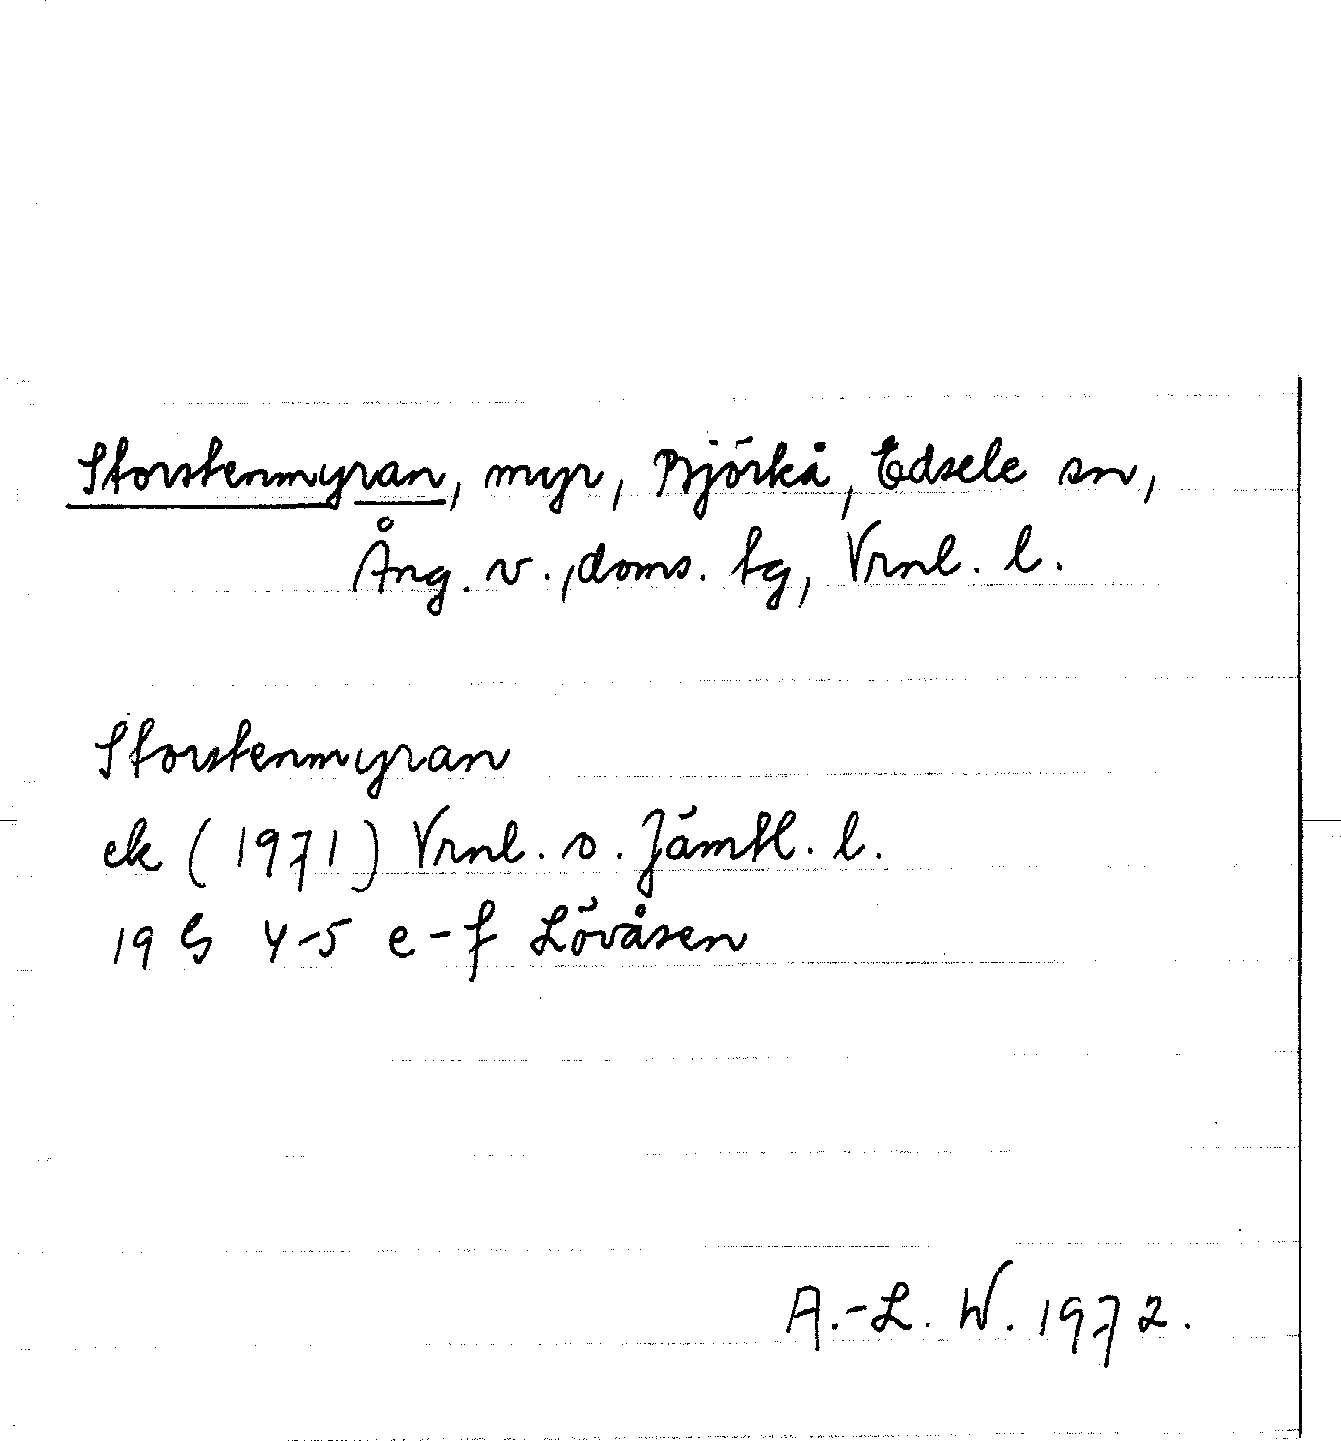 Storstenmyran, myr, Björkå, Edsele sn,
Ång. v., doms. tg, Vrnl. l.
Storstenmyran
ek (1971) Vrnl. o. Jämtl. l.
19 G 4-5 e-f Lövåsen
A.-L. W. 1972.